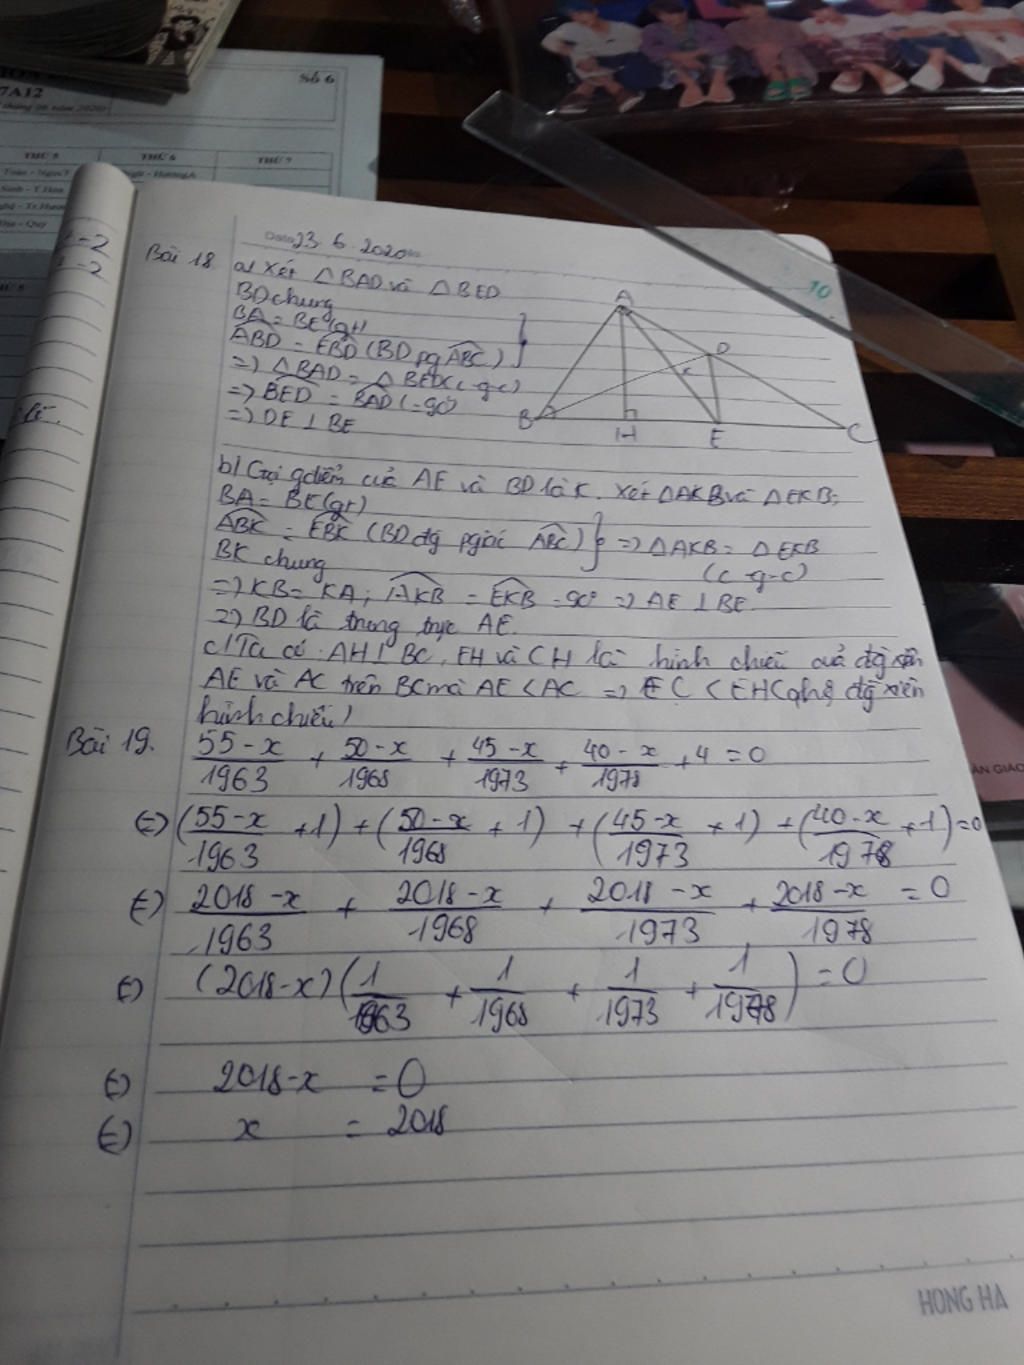 Số 6
7A12
tháng 06 năm 2020
THỨ 5 THỨ 6 THỨ 7
Date 23. 6. 2020
10
Bài 18 a/ Xét △BAD và △BED
BD chung
BA = BE (gt)
ABD = EBD (BD pg ABC)
=> △BAD = △BED (c-g-c)
=> BED = BAD (=90°)
=> DE ⊥ BE
A
D
K
B
H
E
C
b/ Gọi gđiểm của AE và BD là K. Xét △AKB và △EKB:
BA = BE (gt)
ABK = EBK (BD đg pgiác ABC) } => △AKB = △EKB
BK chung (c-g-c)
=> KB = KA; AKB = EKB = 90° => AE ⊥ BE
=> BD là trung trực AE.
c/ Ta có AH ⊥ BC, EH và CH là hình chiếu của đg xiên
AE và AC trên BC mà AE < AC => EC < EH (qhệ đg xiên
hình chiếu)
Bài 19. 55-x/1963 + 50-x/1968 + 45-x/1973 + 40-x/1978 + 4 = 0
(=) (55-x/1963 + 1) + (50-x/1968 + 1) + (45-x/1973 + 1) + (40-x/1978 + 1) = 0
(=) 2018-x/1963 + 2018-x/1968 + 2018-x/1973 + 2018-x/1978 = 0
(=) (2018-x)(1/1963 + 1/1968 + 1/1973 + 1/1978) = 0
(=) 2018-x = 0
(=) x = 2018
HONG HA